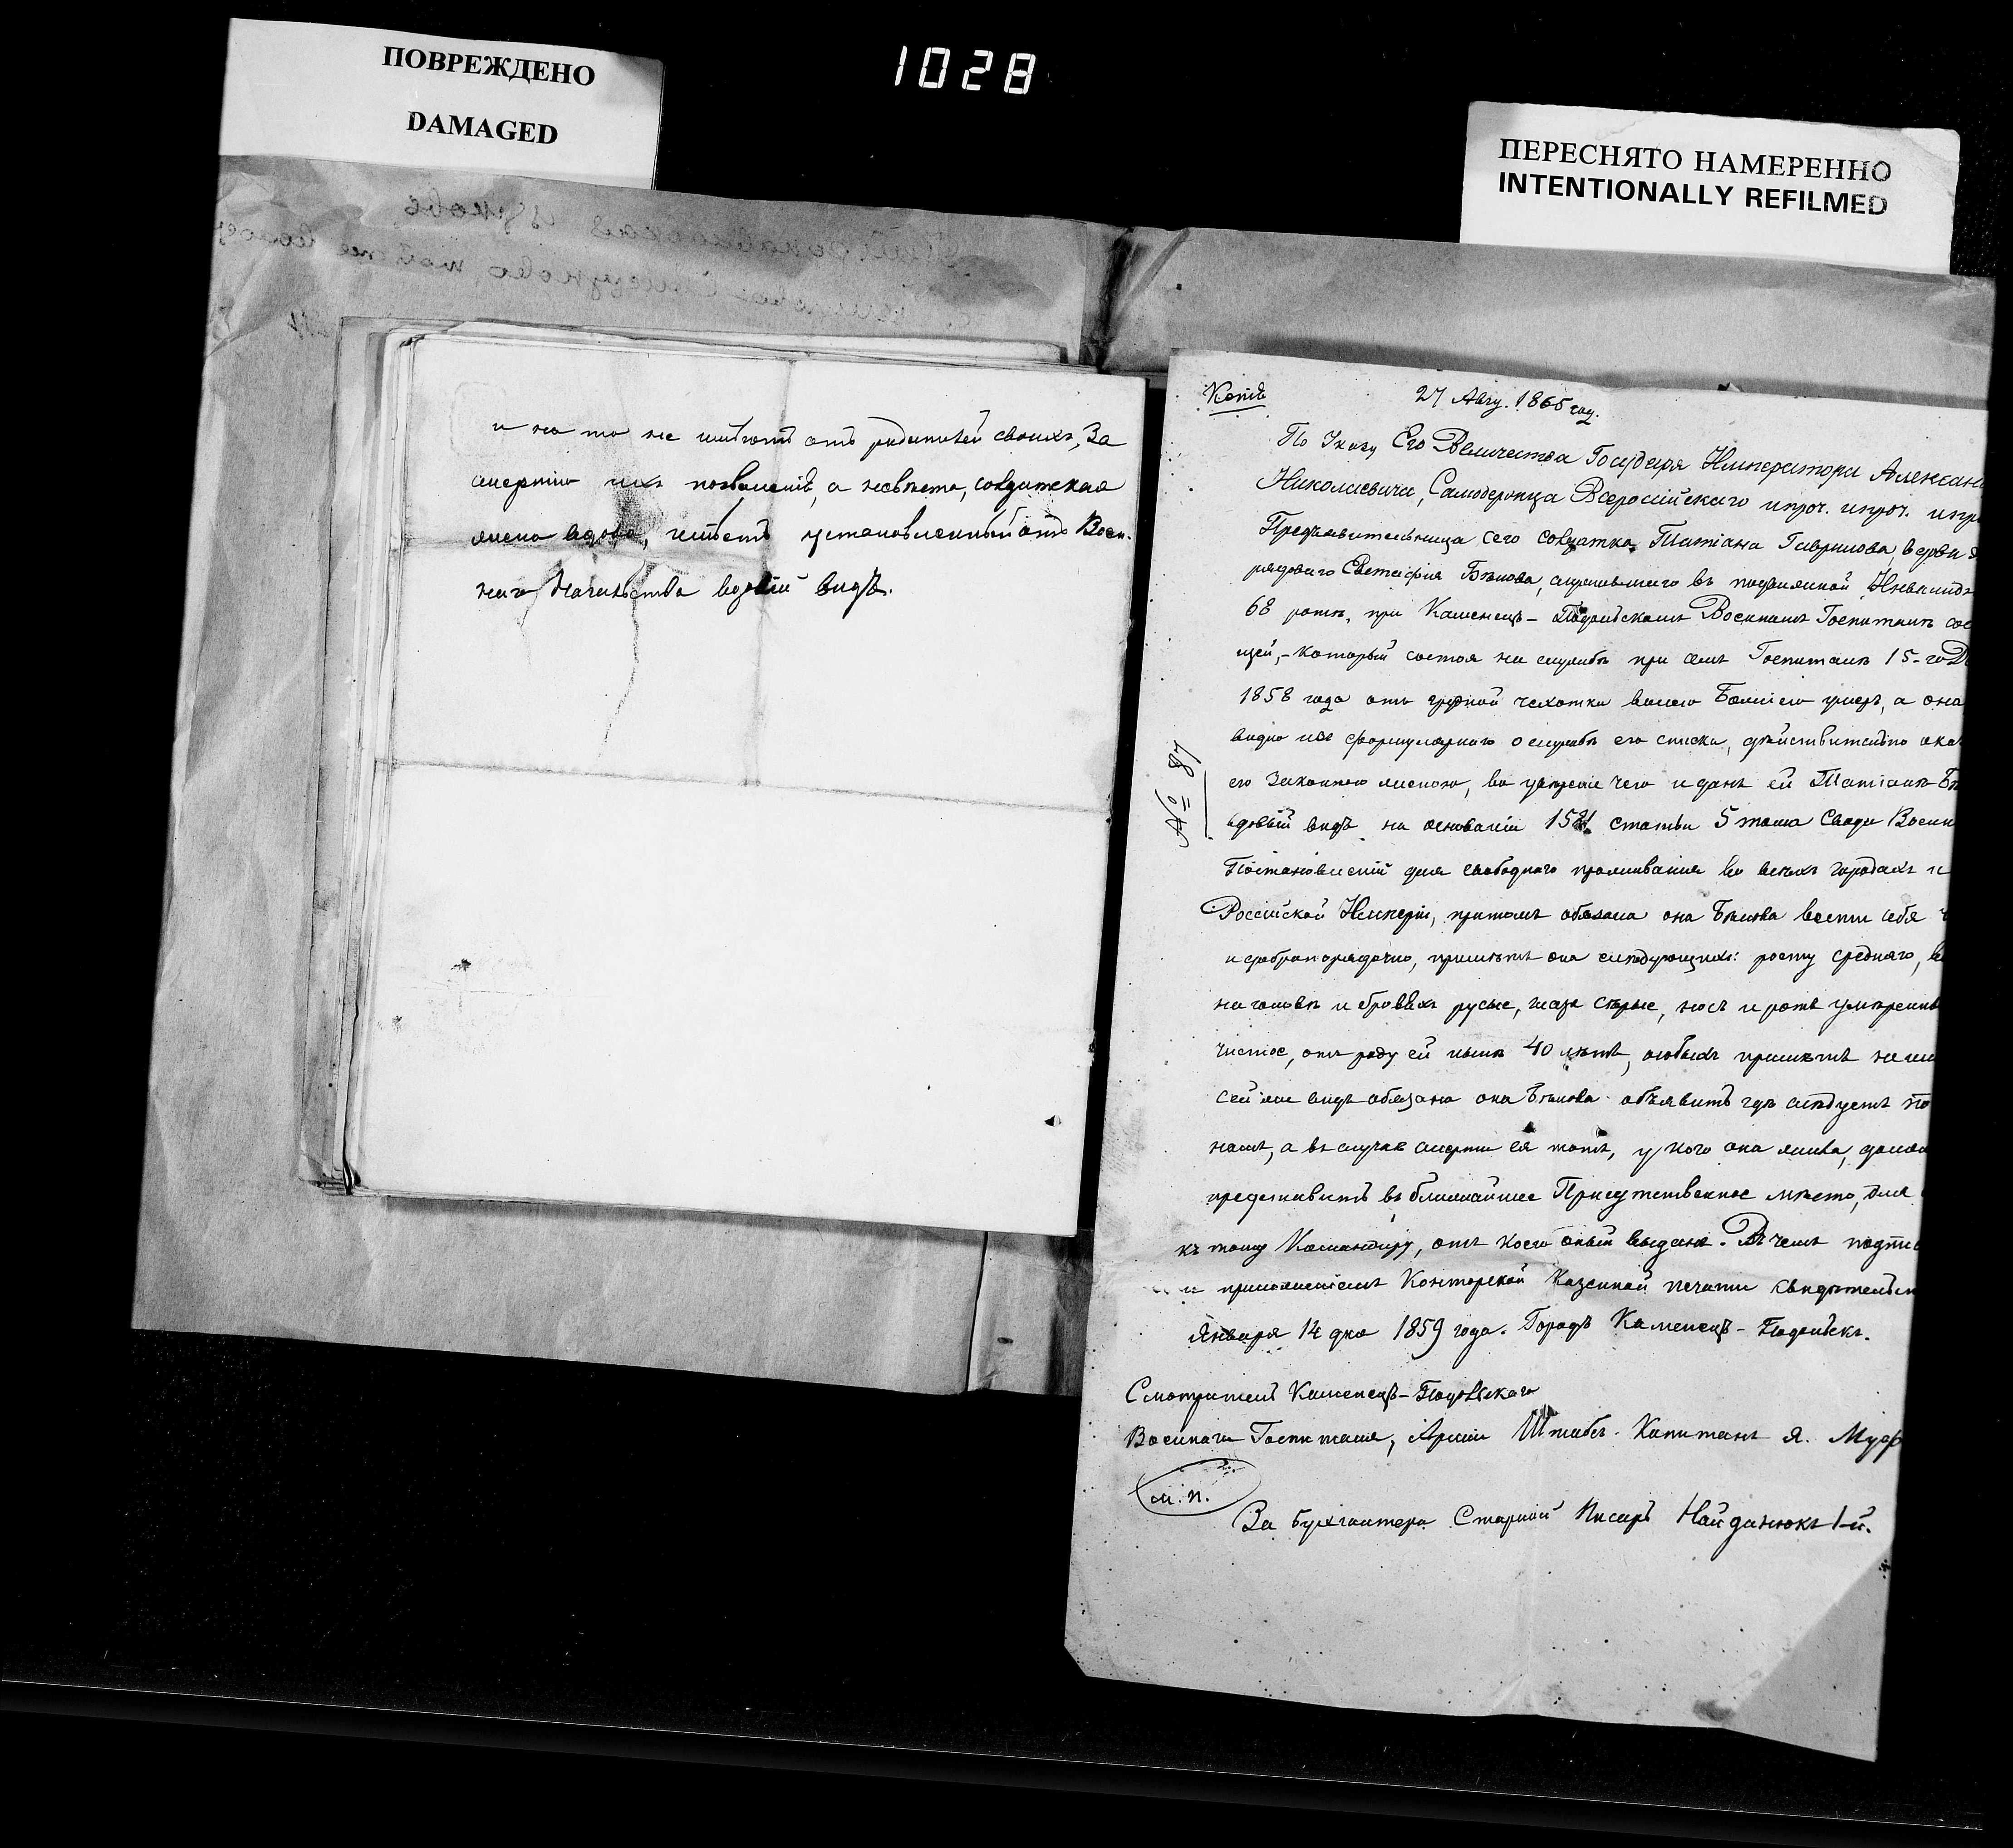 ПОВРЕЖДЕНО
DAMAGED
1028
ПЕРЕСНЯТО НАМЕРЕННО
INTENTIONALLY REFILMED
и на то не имѣютъ отъ родителей своихъ, За
смертію ихъ позволенія, а невѣста, солдатская
жена вдова, имѣетъ установленный отъ Воен-
наго Начальства вдовій видъ.
Копія
27 Авгу. 1865 год.
По Указу Его Величества Государя Императора Алексан
Николаевича, Самодержца Всеросійскаго и проч. и проч. и пр
Предъявительница сего солдатка Татіана Гаврилова, вдова
рядоваго Евстафія Бѣлова, служившаго въ подвижной Инвалид
68 ротѣ, при Каменецъ-Подольскомъ Военномъ Госпиталѣ сос
щей, - который состоя на службѣ при семъ Госпиталѣ 15-го Д
1858 года отъ грудной чахотки волею Божіею умеръ, а она
видно изъ формулярнаго о службѣ его списка, дѣйствительно ока
его законною женою, во увѣреніе чего и данъ ей Татіанѣ Бѣ
вдовій видъ на основаніи 1521 статьи 5 тома Свода Военн
Постановленій для свободнаго проживанія во всѣхъ городахъ и
Россійской Имперіи, притомъ обязана она Бѣлова вести себя ч
и добропорядочно, примѣтъ она слѣдующихъ: росту средняго, во
на головѣ и бровяхъ русые, глаза сѣрые, носъ и ротъ умѣренны
чистое, отъ роду ей нынѣ 40 лѣтъ, особыхъ примѣтъ не им
Сей же видъ обязана она Бѣлова объявить гдѣ слѣдуетъ по
намъ, а въ случаѣ смерти ея тотъ, у кого она жила, долже
представить въ ближайшее Присутственное мѣсто, для
къ тому Командиру, отъ коего оный выданъ. Въ чемъ подпи
и приложеніемъ Конторской Казенной печати свидѣтельс
Января 14 дня 1859 года. Городъ Каменецъ-Подольскъ.
№ 87
Смотритель Каменецъ-Подольскаго
Военнаго Госпиталя, Арміи Штабсъ-Капитанъ Я. Мур
М.П.
За бухгалтера Старшій Писарь Найданюкъ 1-й.